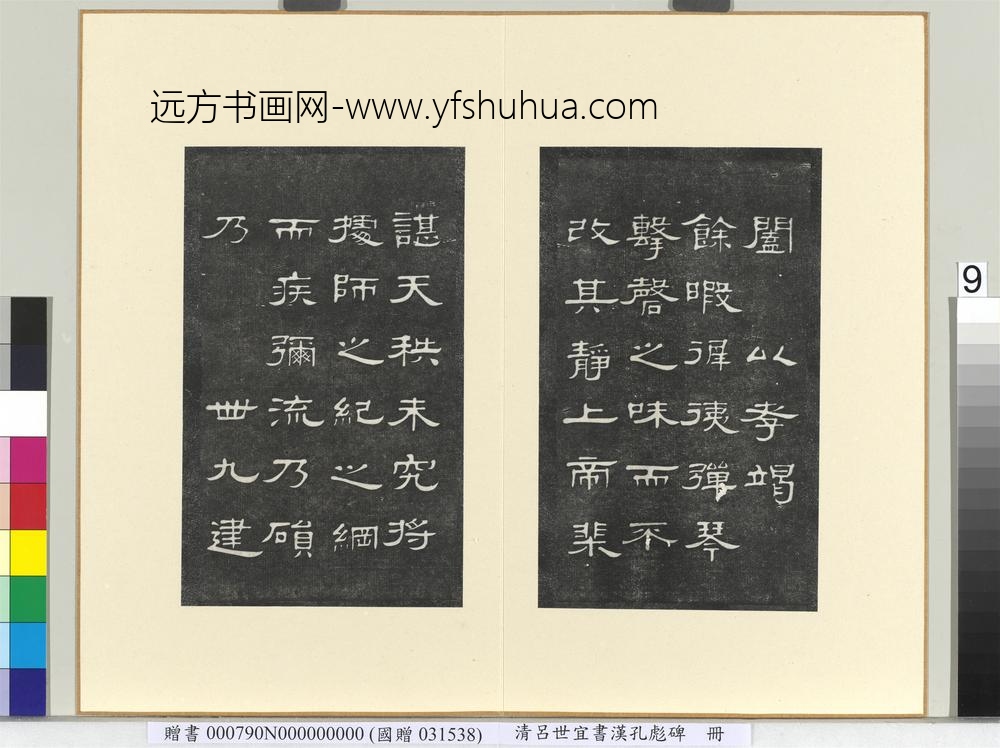 远方书画网-www.yfshuhua.com
闔 以孝竭
餘暇徲徺彈琴
擊磬之味而不
改其靜上帝棐
諶天秩未究將
據師之紀之綱
而疾彌流乃磒
乃 卌九建
9
贈書 000790N000000000 (國贈 031538) 清呂世宜書漢孔彪碑 冊